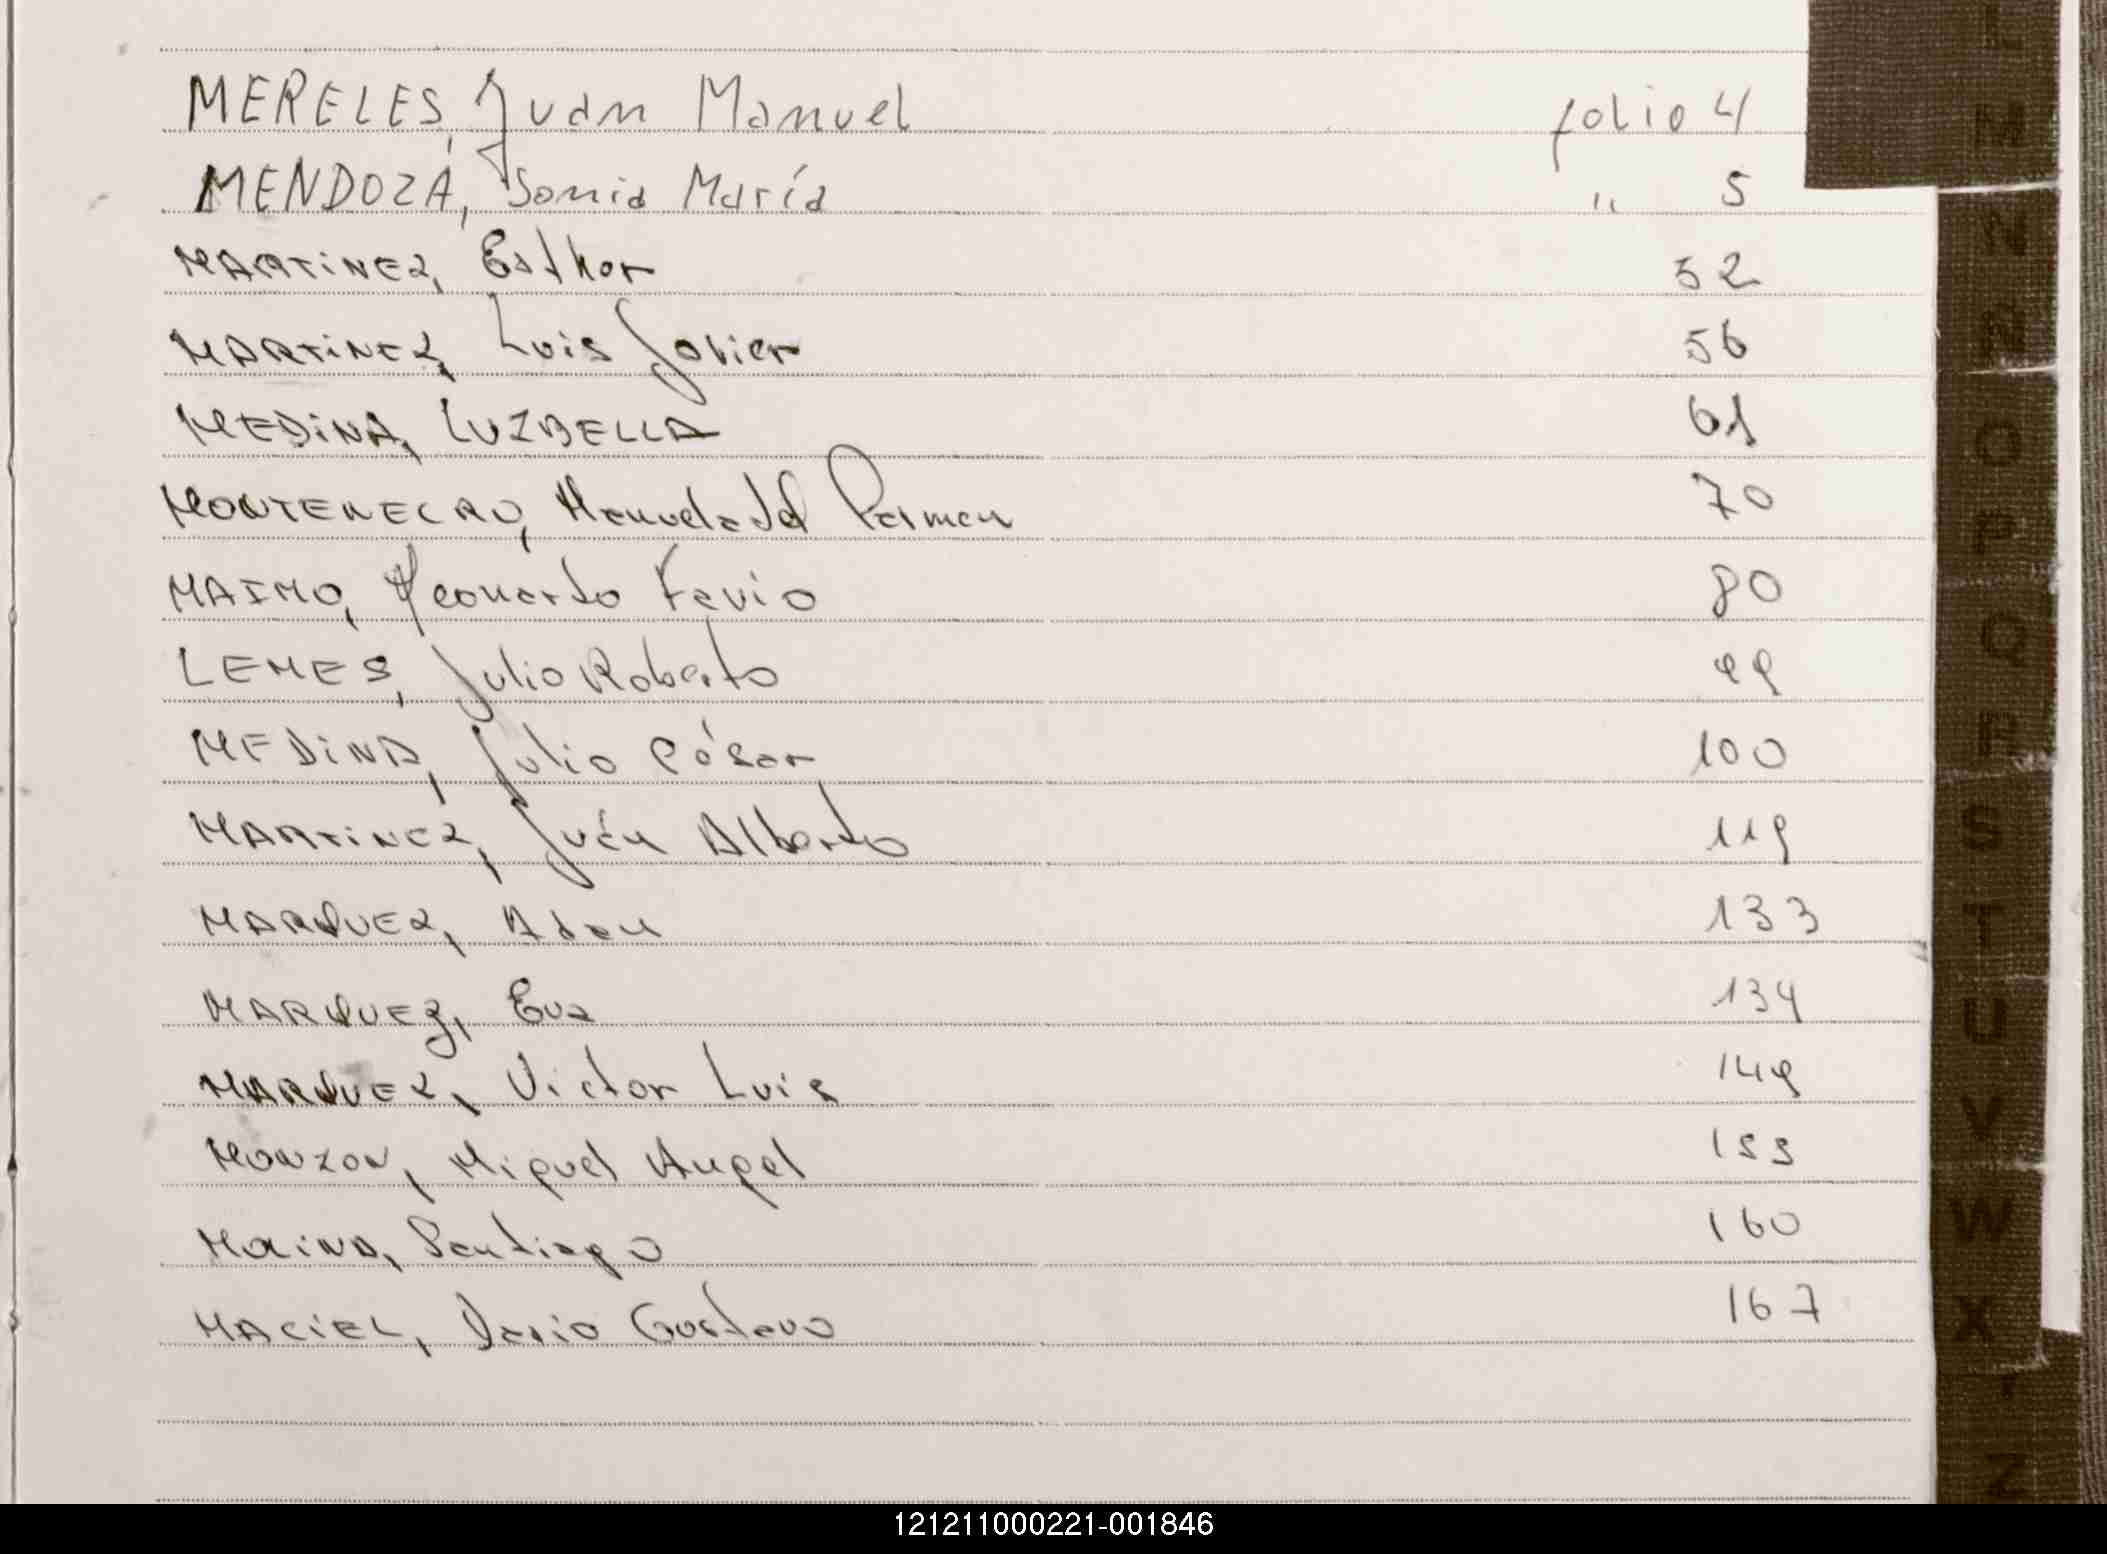 MERELES, Juan Manuel folio 4
MENDOZA, Sonia María " 5
MARTINEZ, Esther 52
MARTINEZ, Luis Javier 56
MEDINA, LUZBELLA 61
MONTENEGRO, Manuela del Carmen 70
MAIMO, Leonardo Favio 80
LEMES, Julio Roberto 99
MEDINA, Julio César 100
MARTINEZ, Juán Alberto 119
MARQUEZ, Adan 133
MARQUEZ, Eva 134
MARQUEZ, Victor Luis 149
MONZON, Miguel Angel 155
Santiago 160
MACIEL, Dario Gustavo 167
L
M
N
Ñ
O
P
Q
R
S
T
U
V
W
X
Y
Z
121211000221-001846